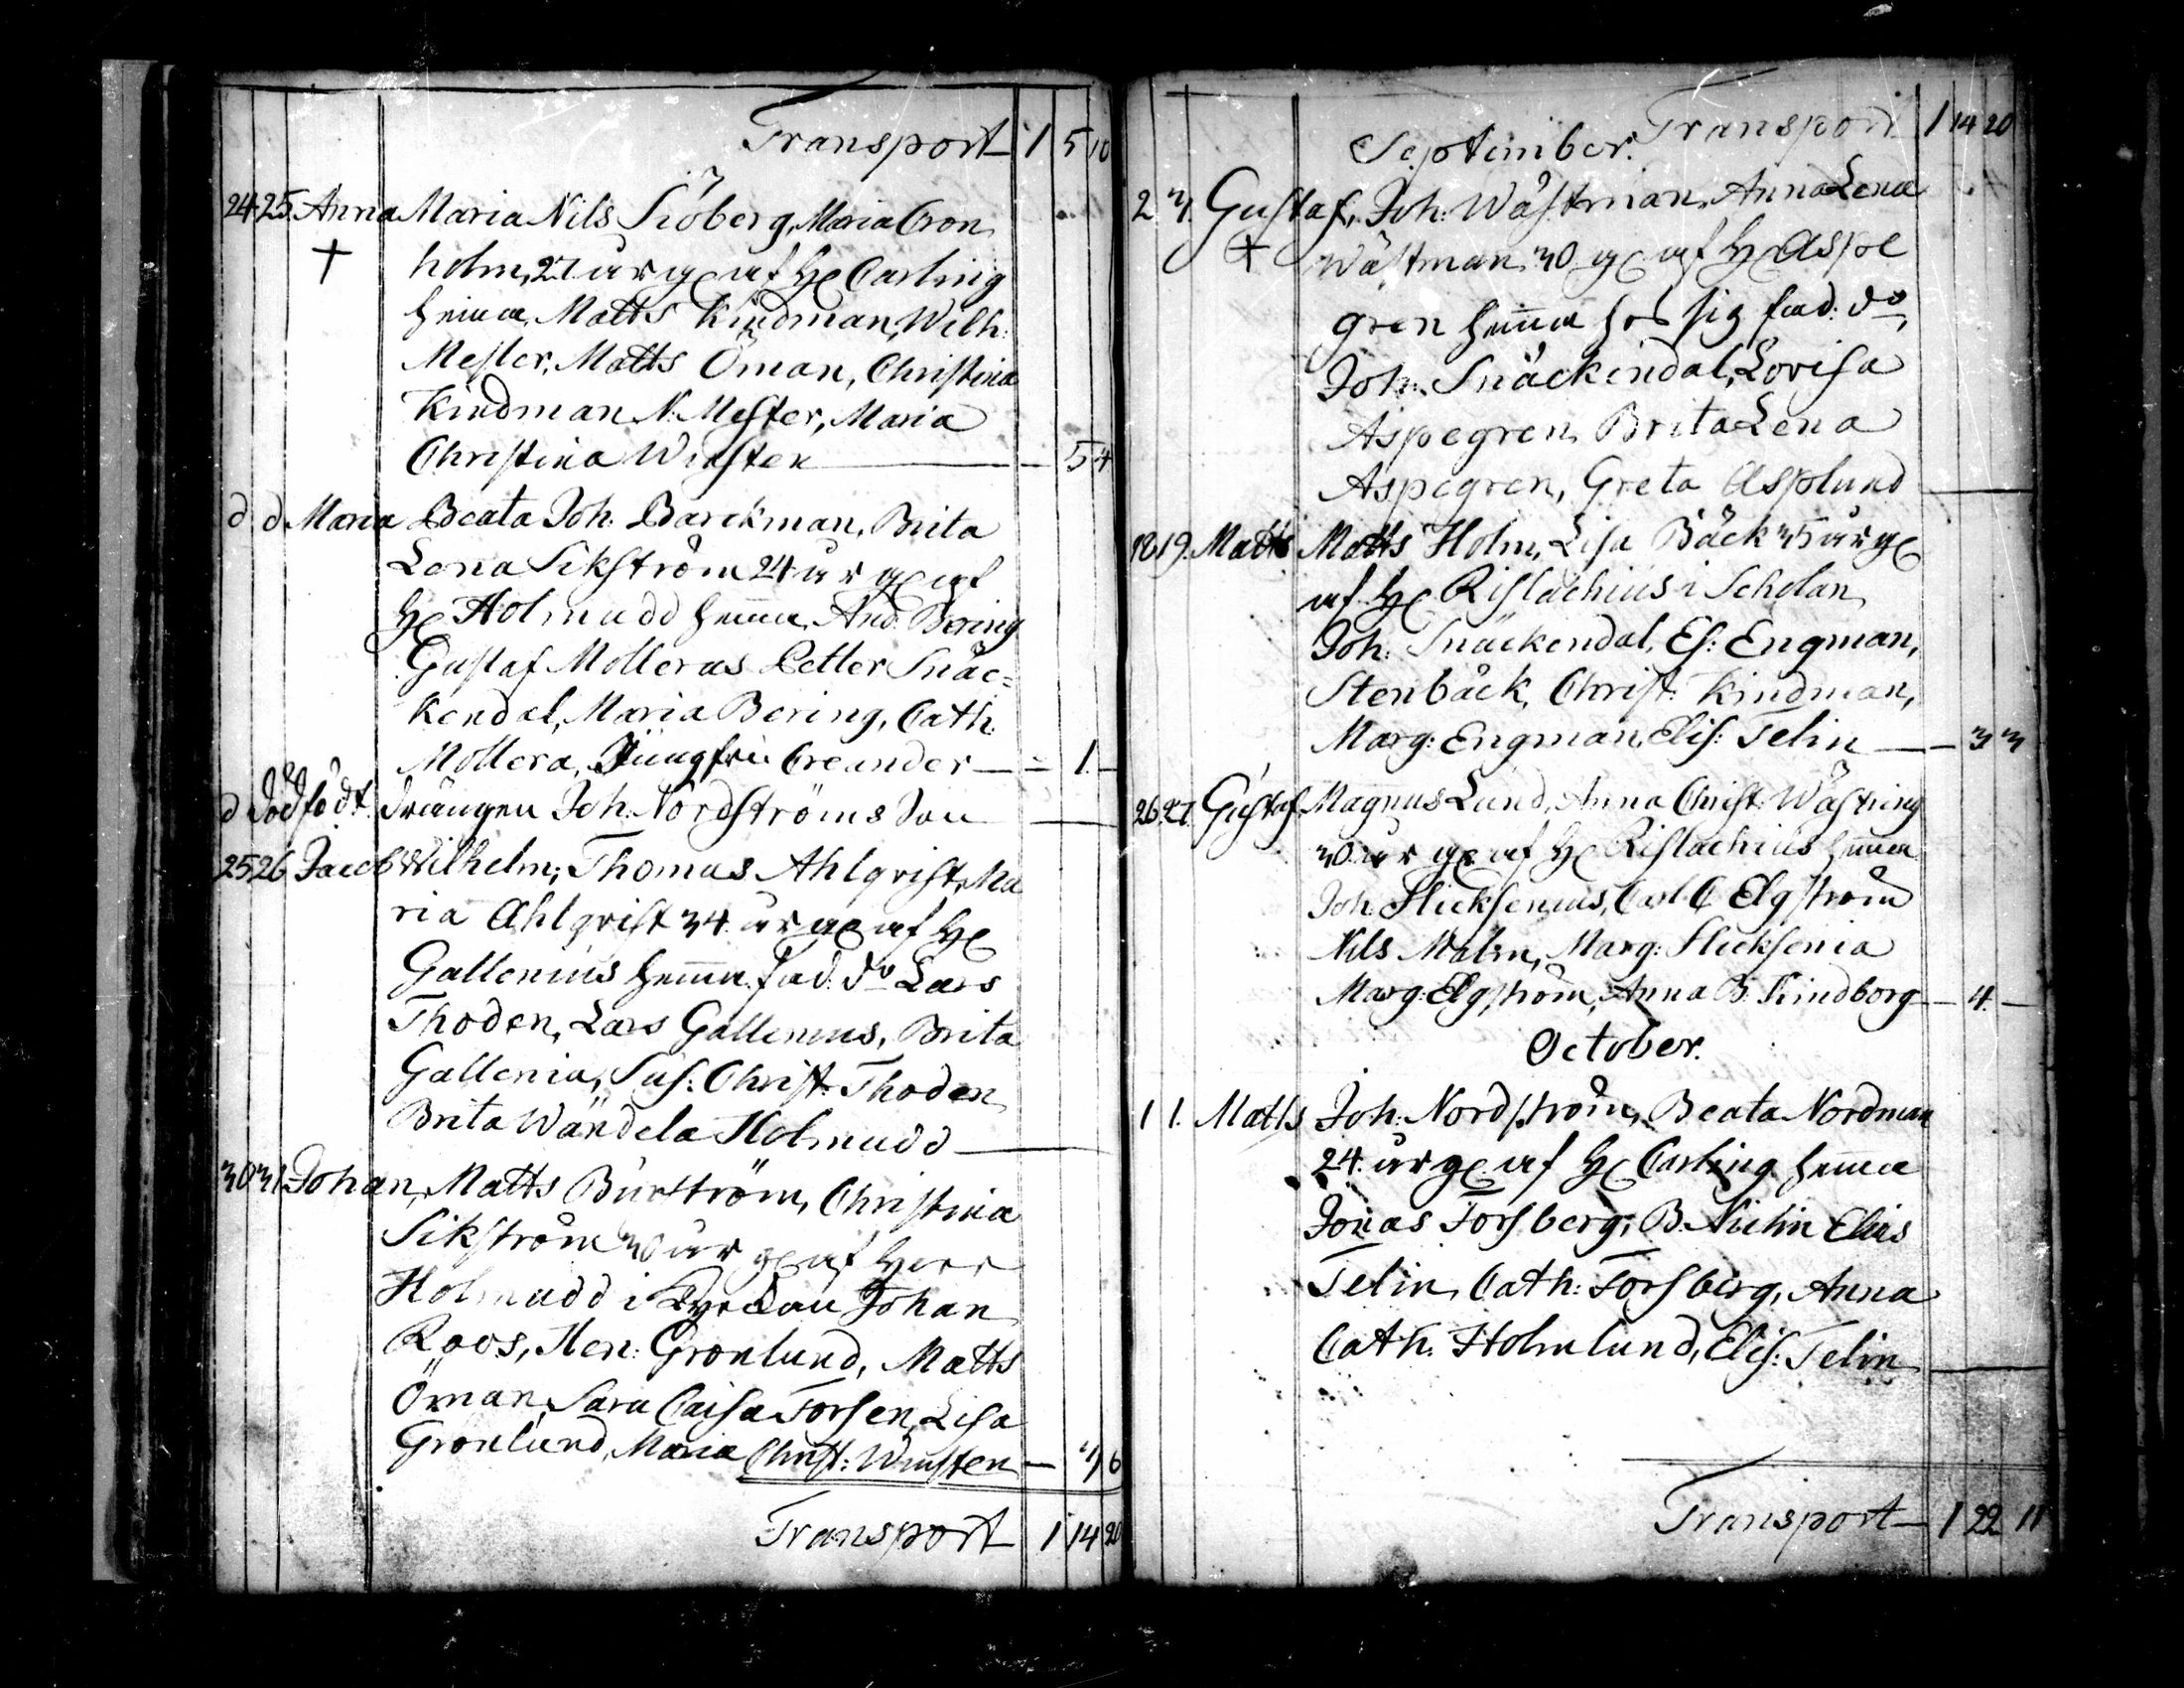 Transport 1 5 10
24 25 Anna Maria Nils Siöberg, Maria Cron
† holm, 27 år af Carling
hemma, Matts Kindman, Wilh:
Mester, Matts Öman, Christina
Kindman N: Mester, Maria
Christina Winsten — 5 4
d. d. Maria Beata Joh. Barckman, Brita
Lena Sikström 24 år af
Holmudd hemma, And. Bering
Gustaf Molleras Petter Snäc=
kendal, Maria Bering, Cath.
Mollera, Jungfru Creander — 1. —
d dödfödt. Drängen Joh. Nordströms Son —
25 26 Jacob Wilhelm, Thomas Ahlqvist, Ma
ria Ahlqvist 34. år af
Gallenius hemma. fad. do Lars
Thoden, Lars Gallenius, Brita
Gallenia, Sus: Christ: Thoden,
Brita Wändela Holmudd —
30 31. Johan, Matts Burström, Christina
Sikström 30 år af Herr
Holmudd i Johan
Roos, Hen: Grönlund, Matts
Öman, Sara Caisa Forsen, Lisa
Grönlund, Maria Christ: Winsten — 3 6
Transport 1 14 20
September. Transport 1 14 20
2 3. Gustaf, Joh: Wästman, Anna Lena
† Wästman, 30 af Aspe
gren hemma hos sig fad: do,
Joh: Snäckendal, Lovisa
Aspegren, Brita Lena
Aspegren, Greta Asplund —
18 19. Matts Matts Holm, Lisa Bäck 35 år
af Rislachius i Scholan,
Joh: Snäckendal, Es: Engman,
Stenbäck, Christ: Kindman,
Marg: Engman, Elis: Telin — 3 3
26. 27. Gustaf. Magnus Lund, Anna Christ: Wästring
30 år af Rislachius hemma
Joh: Flicksenius, Carl C Elgström
Nils Malm, Marg: Flicksenia
Marg: Elgström, Anna B. Kindborg — 4. —
October.
1 1. Matts Joh: Nordström, Beata Nordman
24. år af Carling hemma
Jonas Forsberg, B. Elias
Telin, Cath: Forsberg, Anna
Cath: Holmlund, Elis: Telin —
Transport — 1 22 11